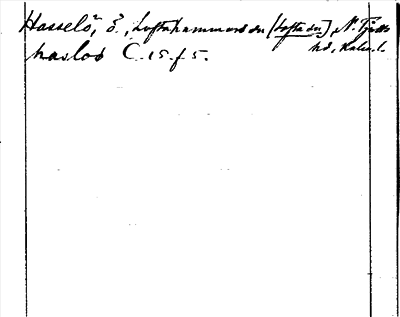 Hasselö, ö., Loftahammars sn (Lofta sn), N. Tjusts
hd, Kalm. l.
hasloö C. 15. f. 5.